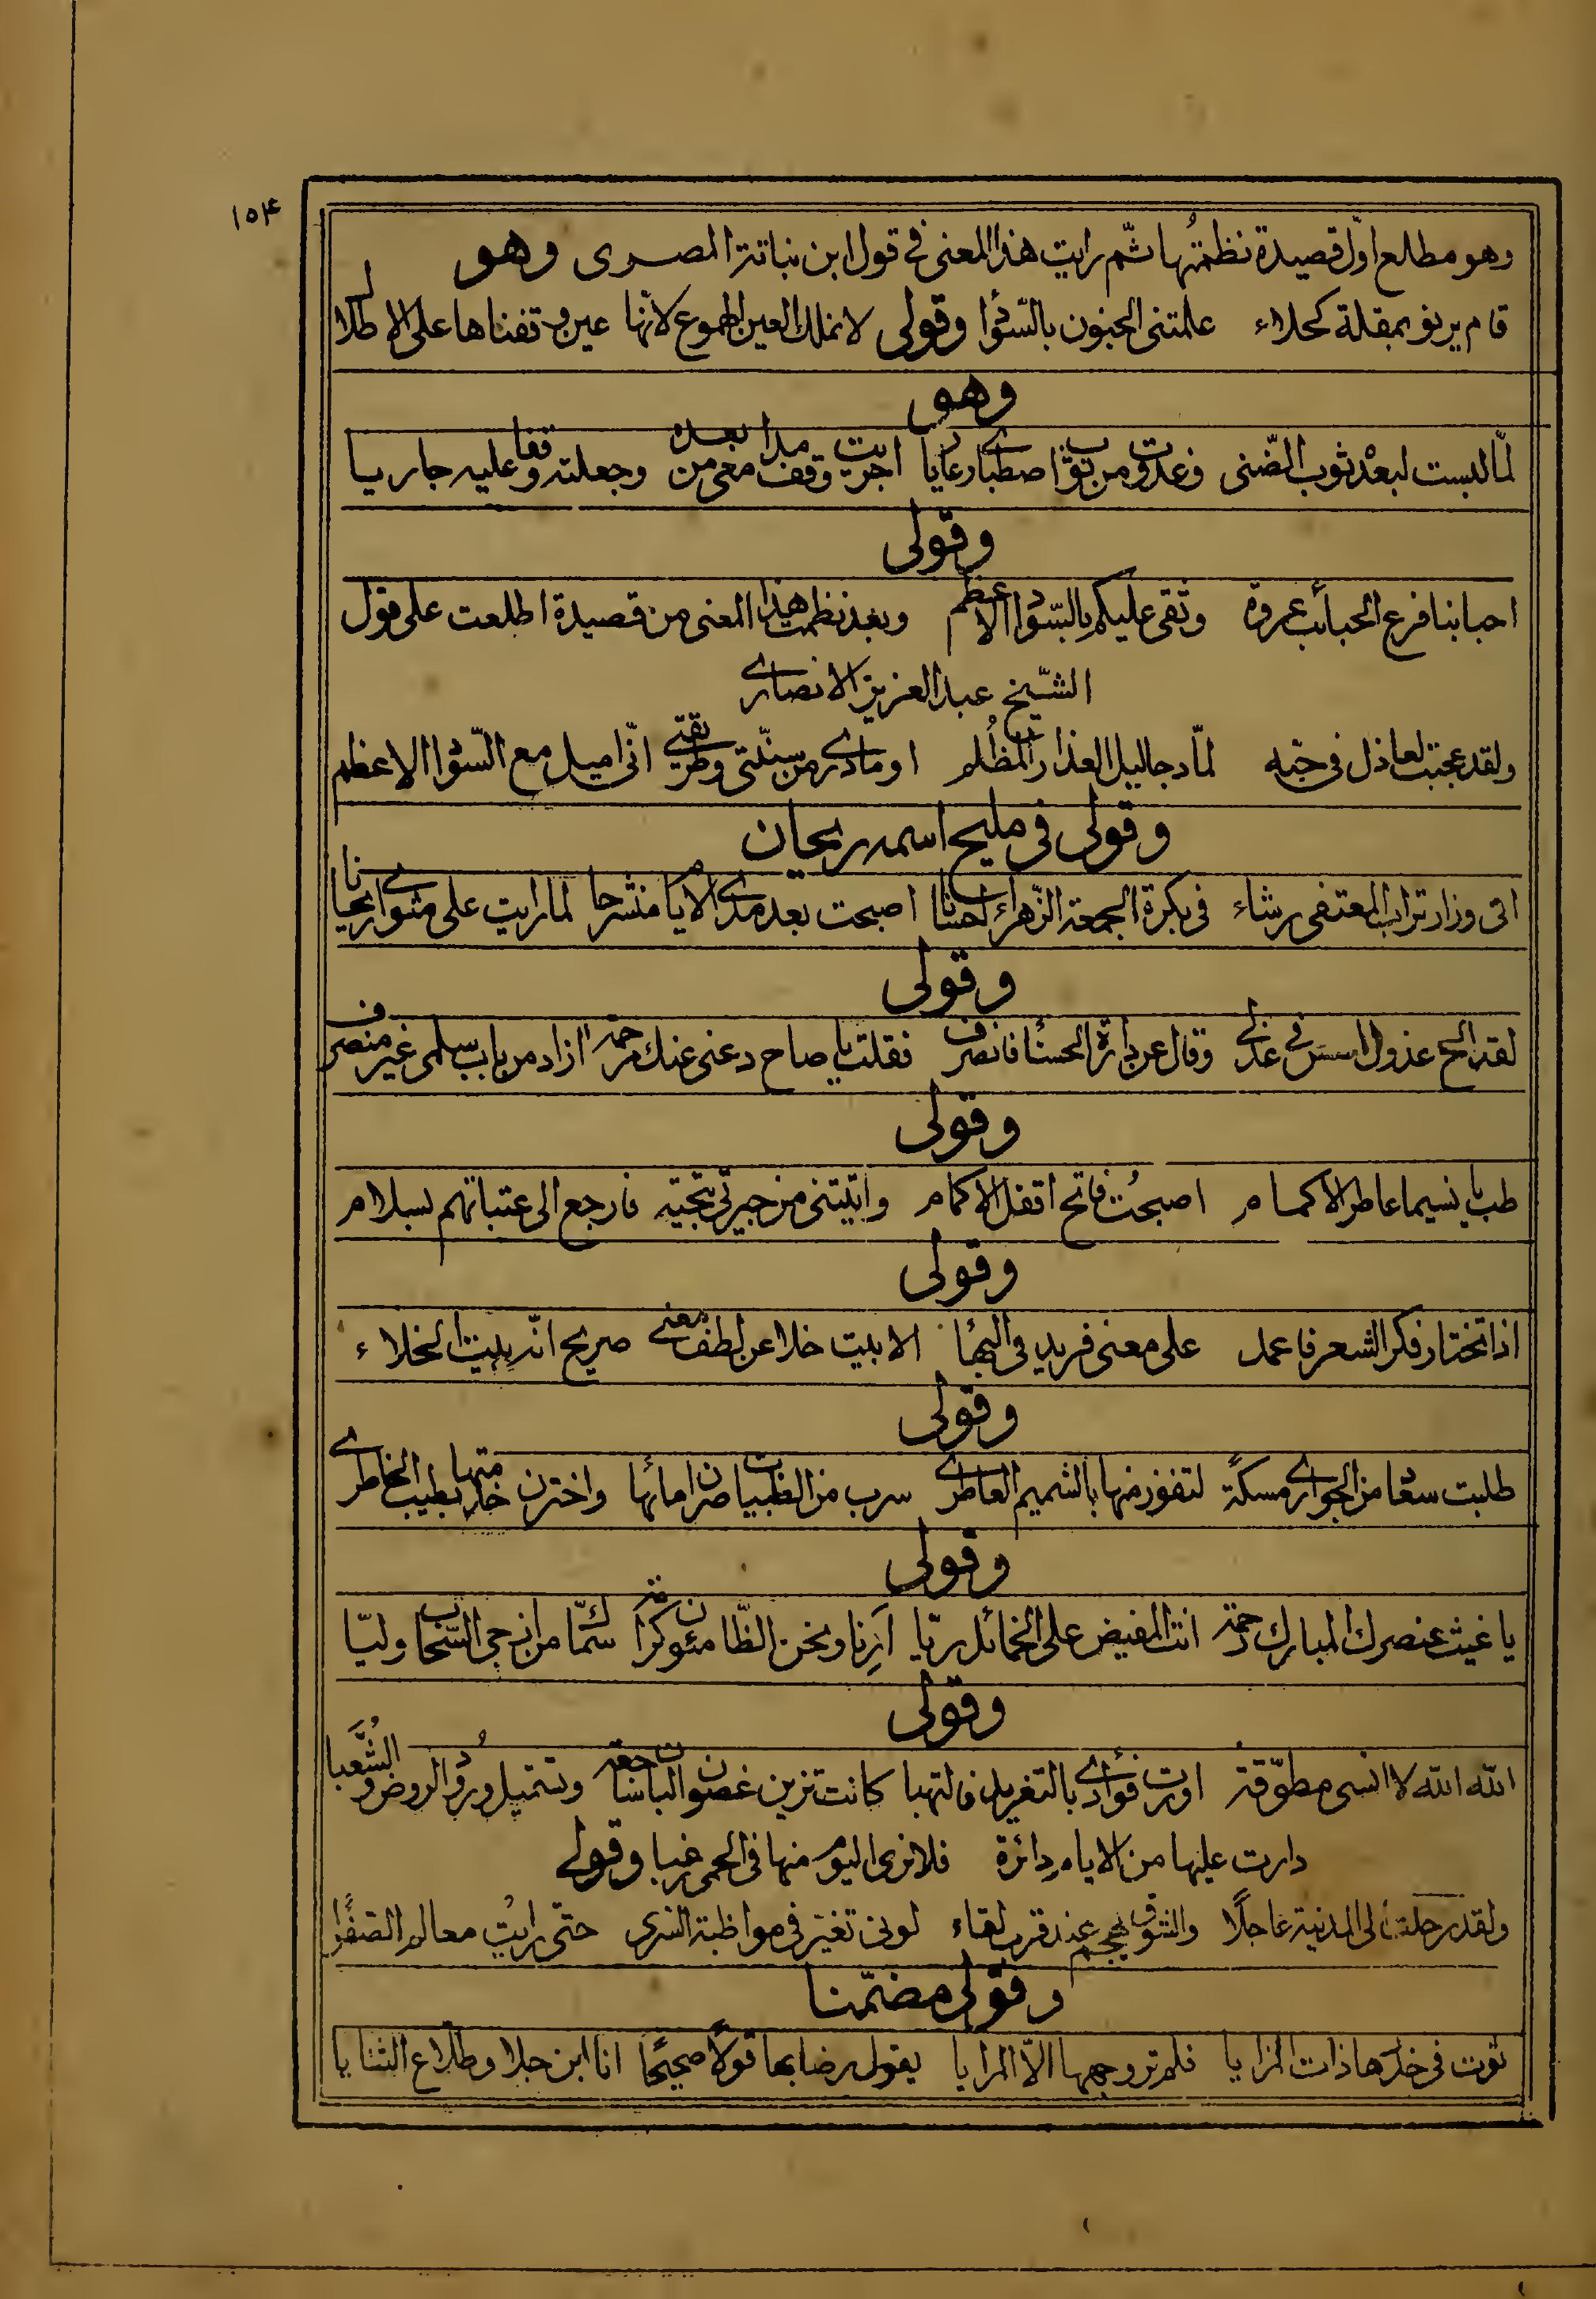 ١٥٤
وهو مطلع اوّل قصيدة نظمتُها ثمّ رايت هذا المعنى في قول ابن نباتة المصرى وهو
قام يرنو بمقلة كحلاء علمتنى الجنون بالسّودا وقولى لا نملك العين الدموع لانّها عين وقفناها على الاطلال
وهو
لمّا لبست لبعده ثوب الضّنى وغدوت من ثوب اصطبارى عاريا اجريت وقف مدامعى من بعده وجعلته وقفا عليه جاريا
وقولى
احبابنا فرع الحبائب عروة وثقى عليكم بالسّواد الاعظم وبعد نظمت هذا المعنى من قصيدة اطلعت على قول
الشّيخ عبد العزيز الانصارى
ولقد عجبت لعاذل فى حبّه لمّا دجا ليل العذار المظلم اوما درى من سنّتى وطريقتى انّى اميل مع السّواد الاعظم
وقولى فى مليح اسمه ريحان
اتى وزار تراب المعتفى رشاء فى بكرة الجمعة الزّهراء احسانا اصبحت بعد مدى الايام منشرحا لما رايت على مثواى ريحانا
وقولى
لقد الحّ عذول اسرف فى عذلى وقال عن دارة الحسناء فانصرف فقلت يا صاح دعنى عنك مرحمة ازاد من باب سلمى غير منصرف
وقولى
طب يا نسيما عاطر الاكمام اصبحُت فاتح اقفل الاكمام واتيتنى من جيرتى بتحيّة فارجع الى عتباتهم بسلام
وقولى
اذا تختار فكر الشعر فاعمد على معنى فريد فى البها الا بيت خلا عن لطف معنى صريح انّه بيت الخلاء
وقولى
طلبت سعاد من الجوارى مسكة لتفوز منها بالشميم العاطرى سرب من الظبيات صرن امائها واخترن خدمتها بطيب الخاطرى
وقولى
يا غيث عنصرك المبارك رحمة انت المفيض على الخمائل ريّا ارنا ونحن الظّامئون كرامة سمّاك من ازجى السّحاب وليّا
وقولى
الله الله لا انسى مطوّقة اورت فؤادى بالتغريد فالتهبا كانت تزين غصون البان ساجعة وتستميل ورود الروض والشُّعبا
دارت عليها من الايام دائرة فلا نرى اليوم منها فى الحمى زغبا وقولى
ولقد رحلت الى المدينة عاجلًا والشوق يهجم عند قرب لقاء لونى تغيّر فى مواظبة السرى حتّى رايتُ معالم الصفراء
وقولى مضمّنا
ثوت فى خدرها ذات المزايا فلم تر وجهها الّا المرايا يقول رضابها قولًا صحيحًا انا ابن جلا وطلّاع الثنايا